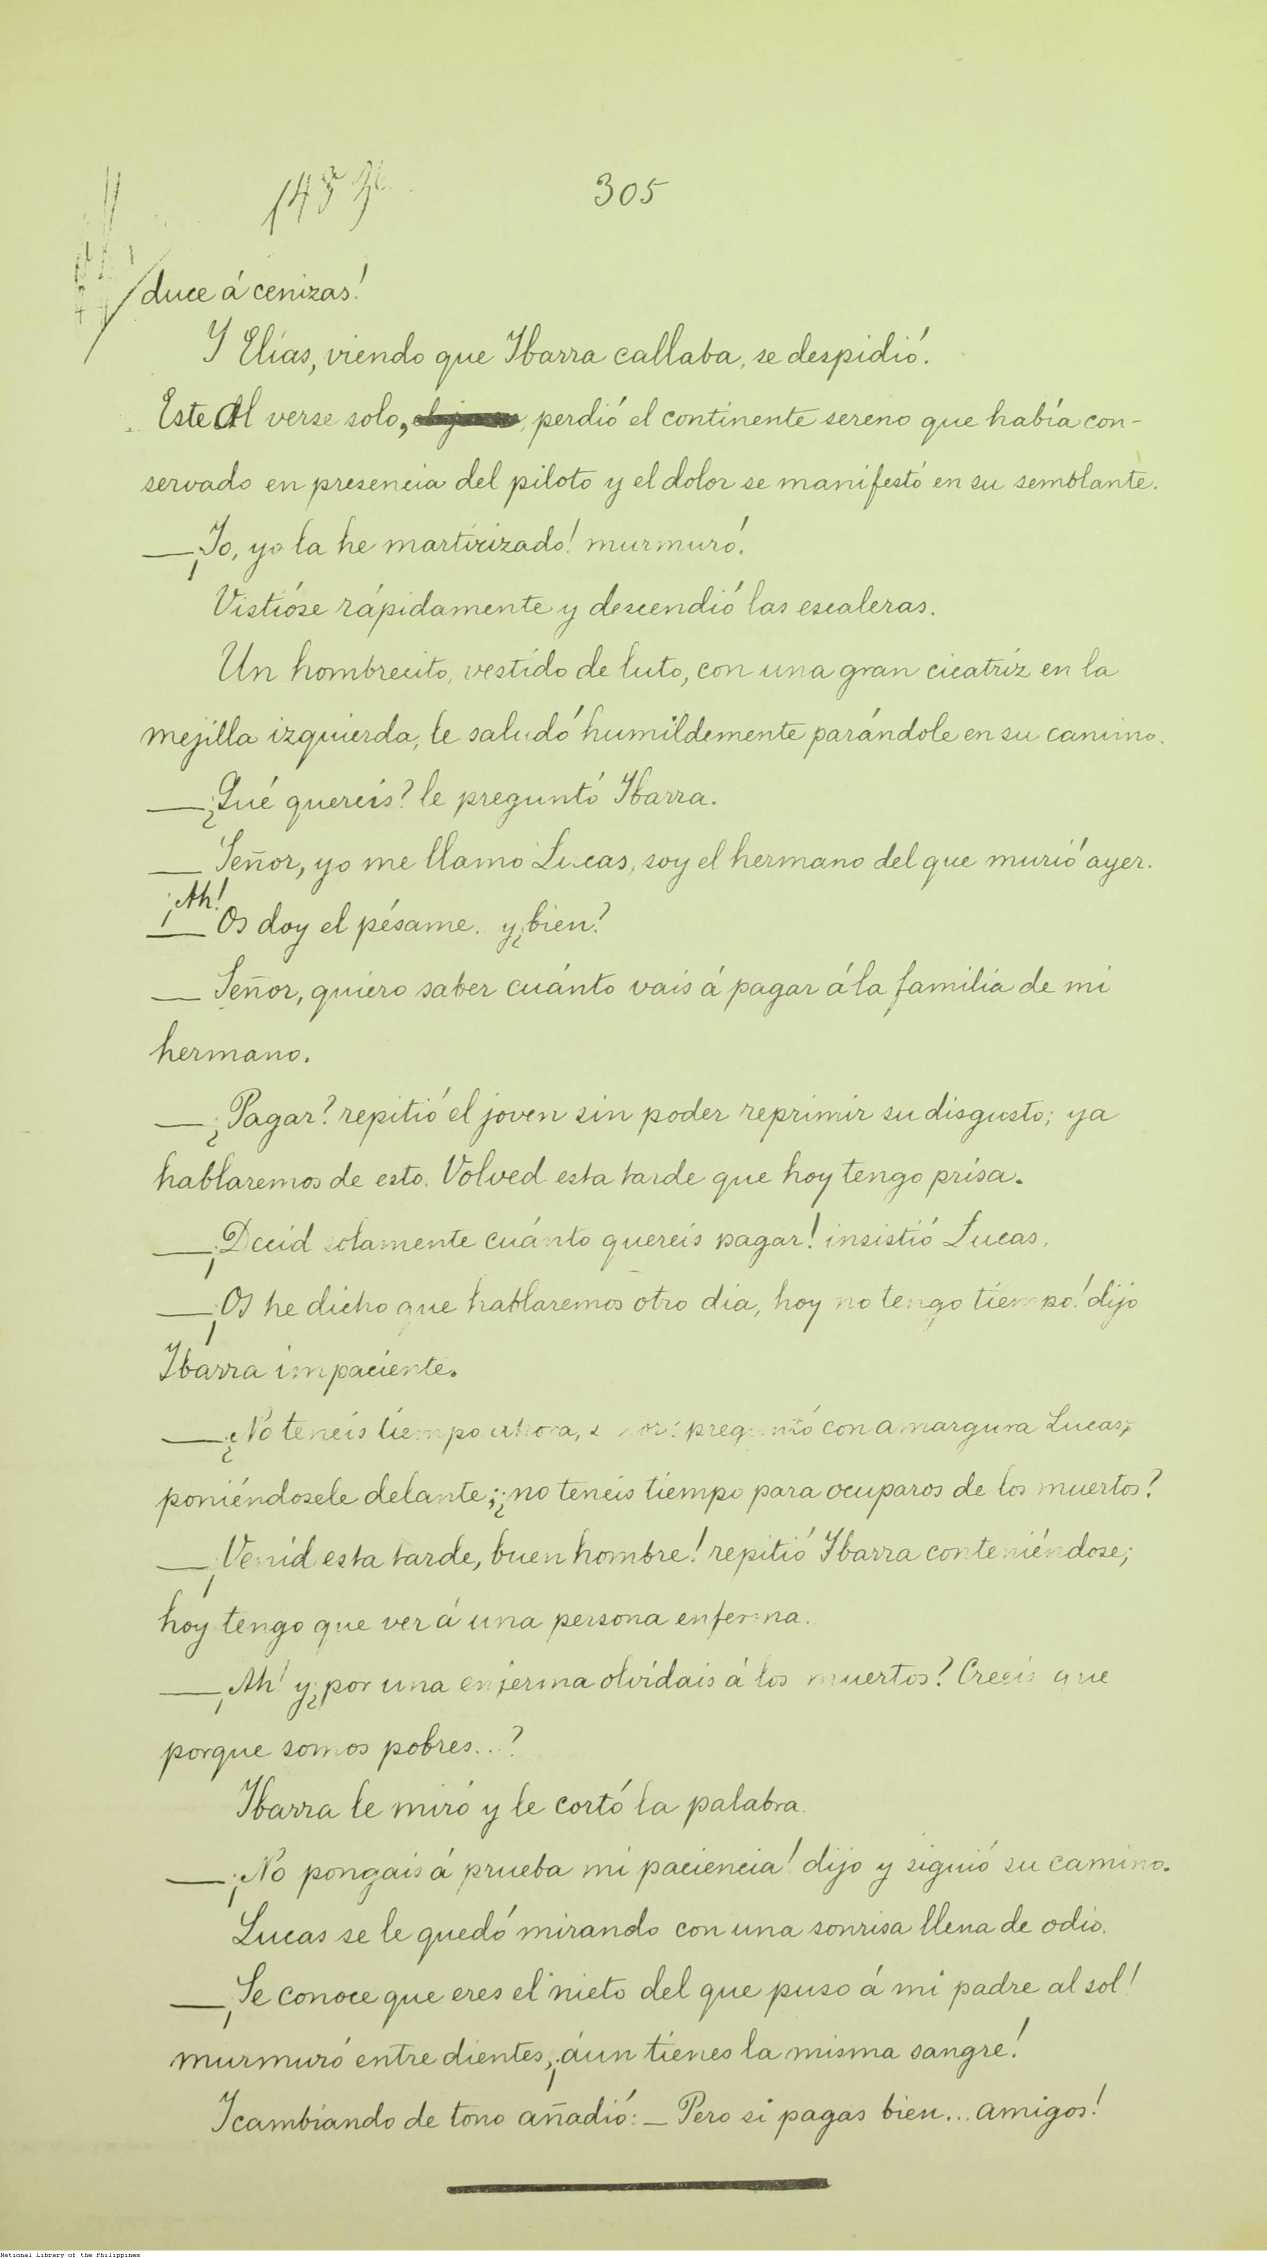 305
duce á cenizas!
Y Elías, viendo que Ibarra callaba, se despidió.
Este al verse solo, perdió el continente sereno que había con-
servado en presencia del piloto y el dolor se manifestó en su semblante.
—¡Yo, yo la he martirizado! murmuró.
Vistióse rápidamente y descendió las escaleras.
Un hombrecito, vestido de luto, con una gran cicatriz en la
mejilla izquierda, le saludó humildemente parándole en su camino.
—¿Qué quereis? le preguntó Ibarra.
— Señor, yo me llamo Lucas, soy el hermano del que murió ayer.
¡Ah!
— Os doy el pésame. y ¿bien?
— Señor, quiero saber cuánto vais á pagar á la familia de mi
hermano.
—¿Pagar? repitió el joven sin poder reprimir su disgusto; ya
hablaremos de esto. Volved esta tarde que hoy tengo prisa.
—¡Decid solamente cuánto quereis pagar! insistió Lucas.
—¡Os he dicho que hablaremos otro dia, hoy no tengo tiempo! dijo
Ibarra impaciente.
—¿No teneis tiempo ahora, preguntó con amargura Lucas,
poniéndosele delante; ¿no teneis tiempo para ocuparos de los muertos?
—¡Venid esta tarde, buen hombre! repitió Ibarra conteniéndose;
hoy tengo que ver á una persona enferma.
—¡Ah! y ¿por una enferma olvidais á los muertos? Creeis que
porque somos pobres...?
Ibarra le miró y le cortó la palabra.
—¡No pongais á prueba mi paciencia! dijo y siguió su camino.
Lucas se le quedó mirando con una sonrisa llena de odio.
—¡Se conoce que eres el nieto del que puso á mi padre al sol!
murmuró entre dientes, ¡áun tienes la misma sangre!
Y cambiando de tono añadió: — Pero si pagas bien... amigos!
National Library of the Philippines